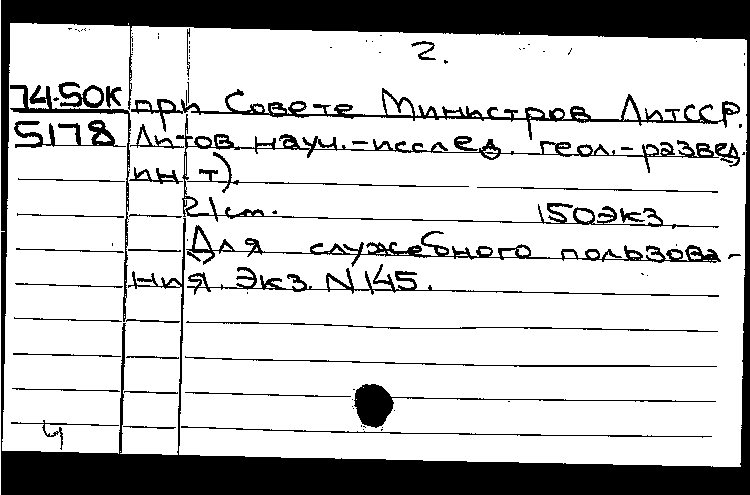 2.
74-50K при Совете Министров ЛитССР.
5178 Литов. науч.-исслед. геол.-развед.
ин-т).
21cm. 150экз.
Для служебного пользова-
ния. Экз. N145.
ч